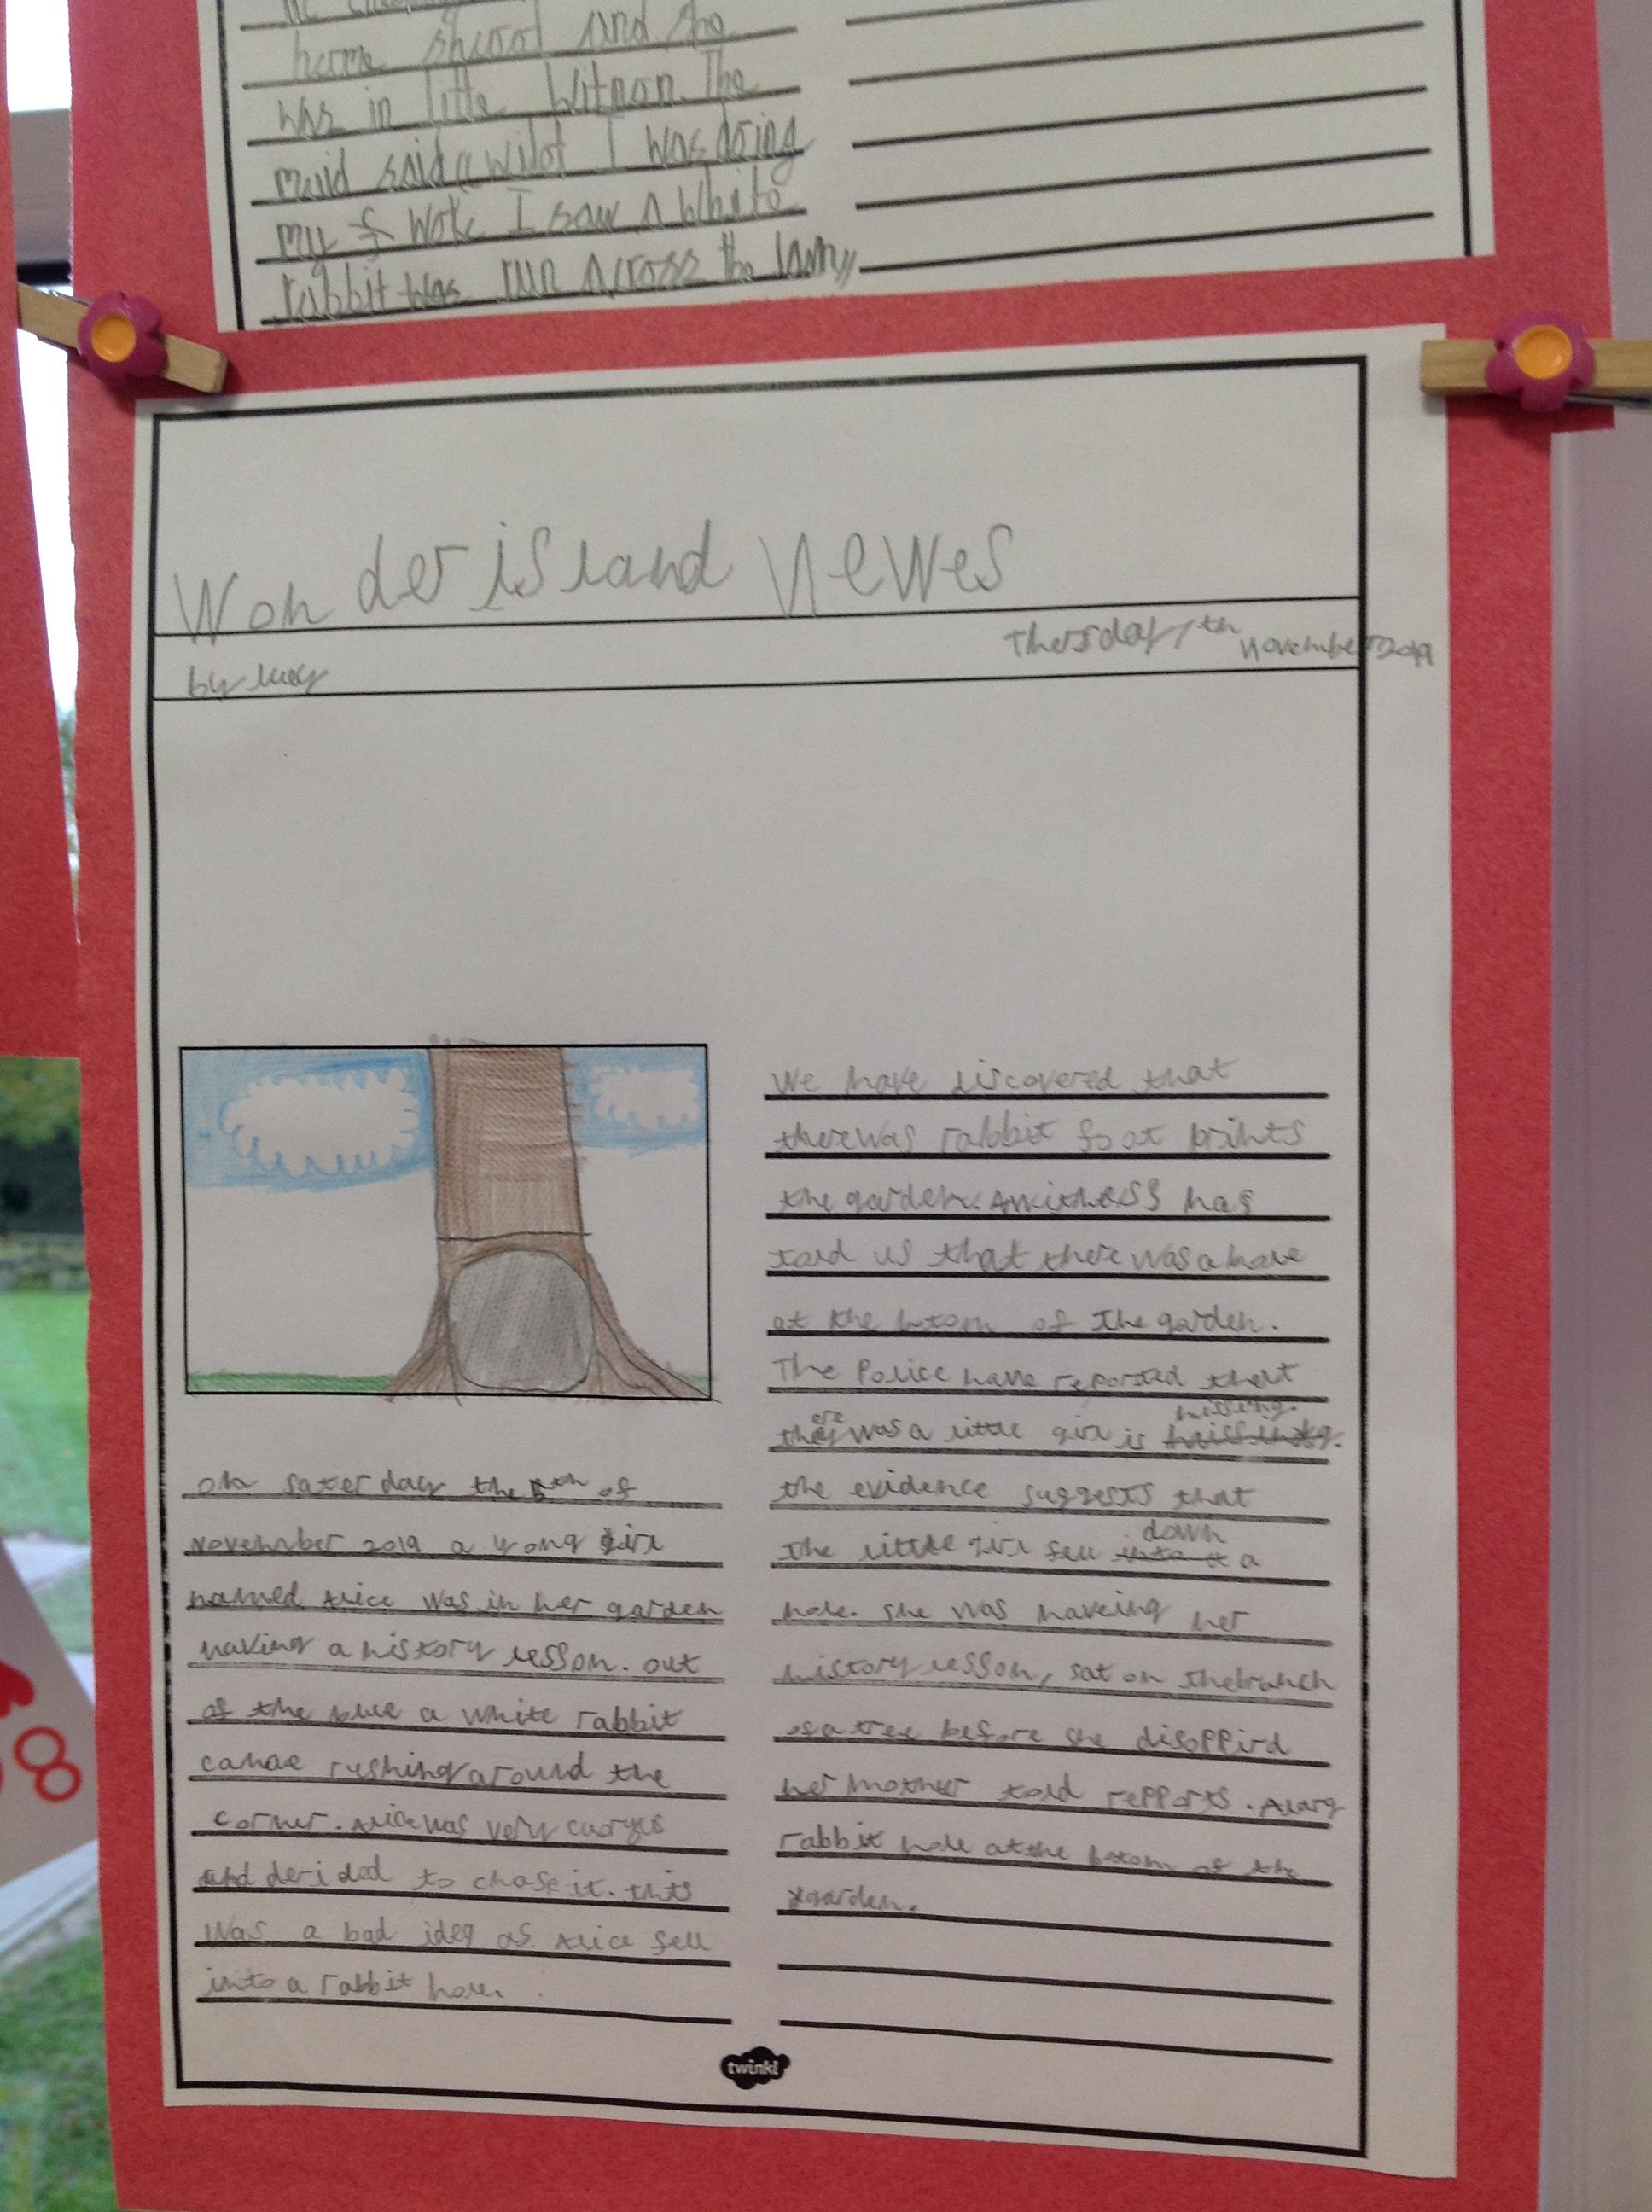 home shcool and she
was in little Witnon. The
maid said "wilst I was doing
my wok I saw a White
rabbit was run across the lawn"
Wonderisland Newes
by lucy
Thersday 7th November 2019
on saterday the 5th of
November 2019 a yong girl
named Alice was in her garden
having a history lesson. out
of the blue a white rabbit
came rushing around the
corner. Alice was very curyus
and decided to chase it. this
was a bad idea as Alice fell
into a rabbit hole.
We have discovered that
there was rabbit foot prints
the garden. A witness has
told us that there was a hole
at the botom of the garden.
The Police have reported that
there was a little girl is missing.
the evidence suggests that
the little girl fell down a
hole. she was haveing her
history lesson, sat on the branch
of a tree before she disappird
her mother told repports. A larg
rabbit hole at the botom of the
garden.
twinkl
8